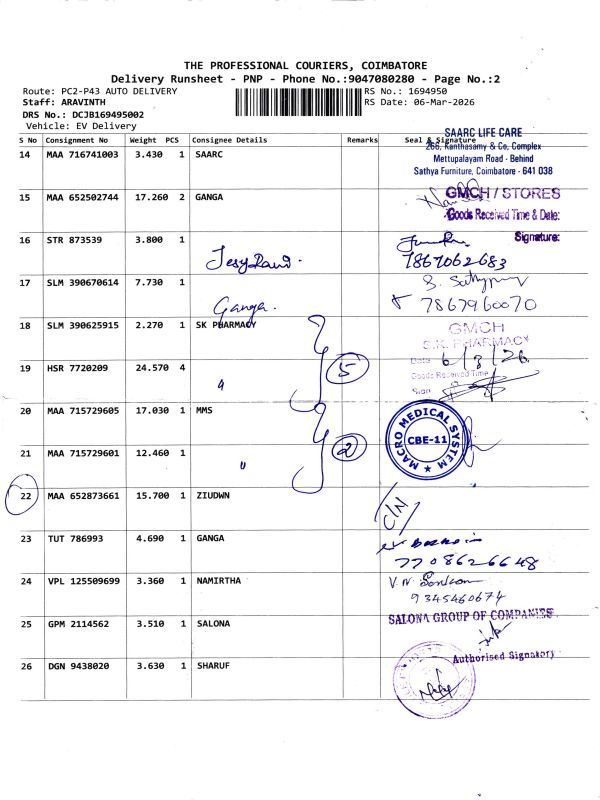 THE PROFESSIONAL COURIERS, COIMBATORE
Delivery Runsheet - PNP - Phone No.:9047080280 - Page No.:2
Route: PC2-P43 AUTO DELIVERY
RS No.: 1694950
Staff: ARAVINTH
RS Date: 06-Mar-2026
DRS No.: DCJB169495002
Vehicle: EV Delivery
S No Consignment No Weight PCS Consignee Details Remarks Seal & Signature
14 MAA 716741003 3.430 1 SAARC
SAARC LIFE CARE
266, Kanthasamy & Co, Complex
Mettupalayam Road - Behind
Sathya Furniture, Coimbatore - 641 038
15 MAA 652502744 17.260 2 GANGA
GMCH / STORES
Goods Received Time & Date:
Signature:
16 STR 873539 3.800 1
7867062683
17 SLM 390670614 7.730 1
Ganga.
7867960070
18 SLM 390625915 2.270 1 SK PHARMACY
GMCH
S.K. PHARMACY
Date 6/3/26
Goods Received Time
Sign
19 HSR 7720209 24.570 4 "
5
20 MAA 715729605 17.030 1 MMS
MACRO MEDICAL SYSTEM
CBE-11
21 MAA 715729601 12.460 1 "
2
22 MAA 652873661 15.700 1 ZIUDWN
C/N
23 TUT 786993 4.690 1 GANGA
7708626648
24 VPL 125509699 3.360 1 NAMIRTHA
9345460674
25 GPM 2114562 3.510 1 SALONA
SALONA GROUP OF COMPANIES
Authorised Signatory
26 DGN 9438020 3.630 1 SHARUF